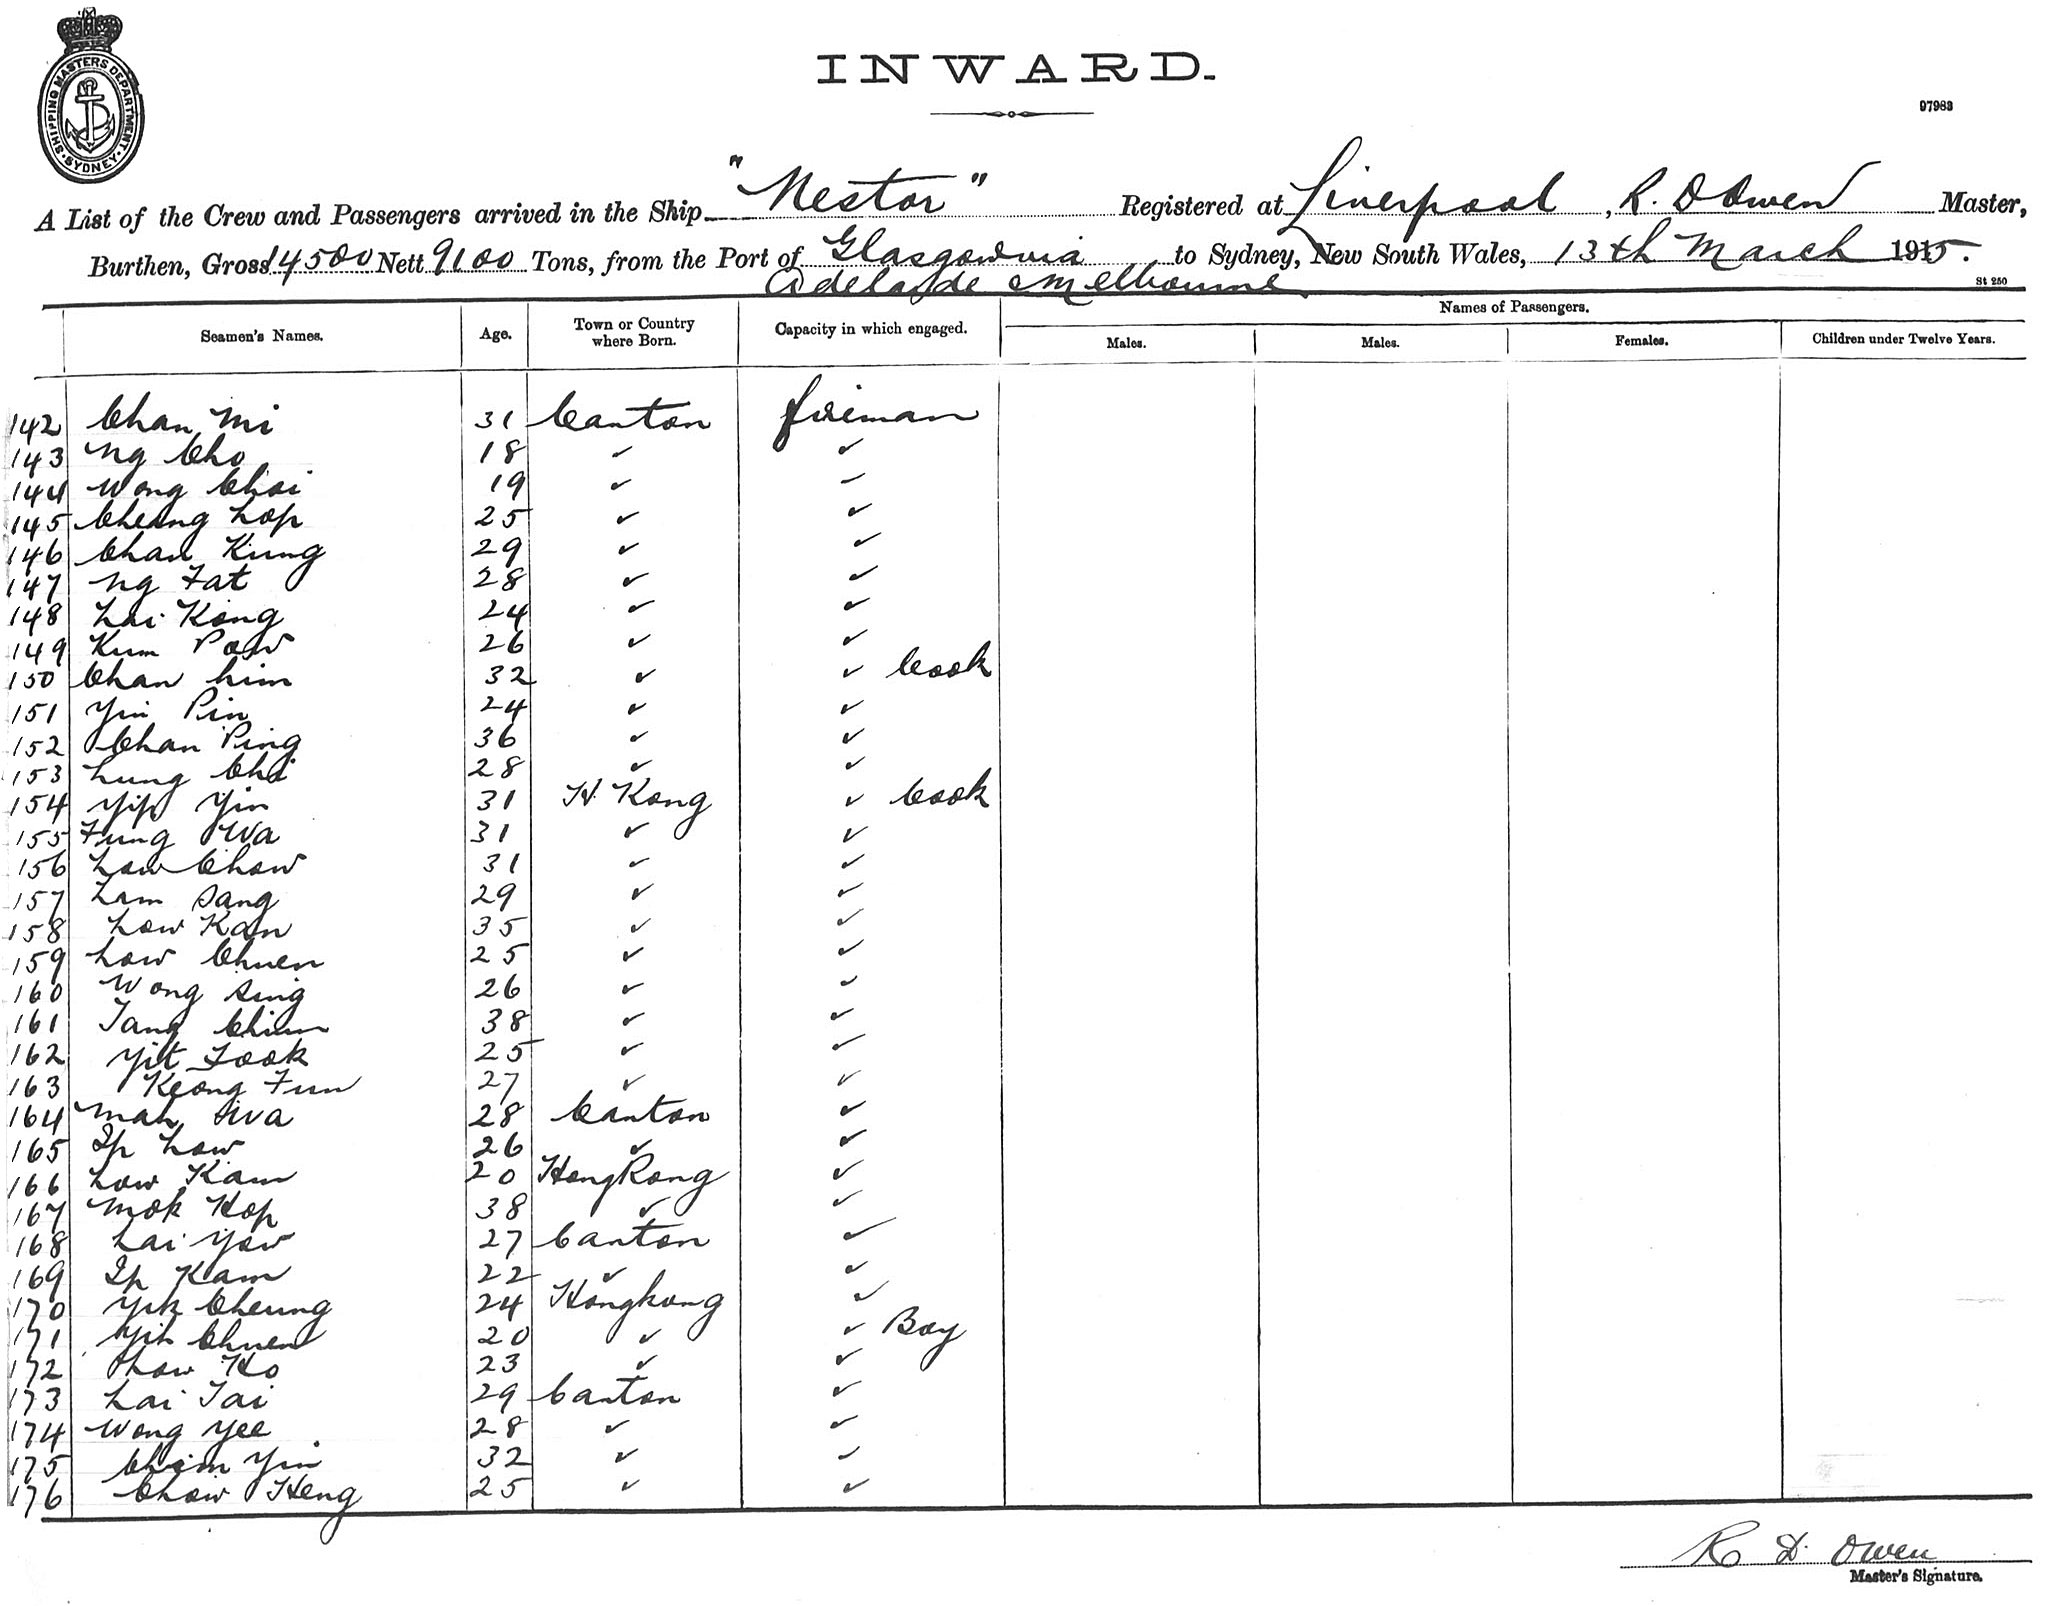 SHIPPING MASTERS DEPARTMENT. SYDNEY
INWARD.
97983
A List of the Crew and Passengers arrived in the Ship "Nestor" Registered at Liverpool, R. D Owen Master,
Burthen, Gross 14500 Nett 9100 Tons, from the Port of Glasgow via to Sydney, New South Wales, 13th March 1915.
Adelaide & Melbourne
St 250
Seamen's Names. Age. Town or Country where Born. Capacity in which engaged. Names of Passengers.
Males. Males. Females. Children under Twelve Years.
142 Chan Mi 31 Canton fireman
143 Ng Cho 18 ✓ ✓
144 Wong Choi 19 ✓ ✓
145 Cheang Lop 25 ✓ ✓
146 Chan Kung 29 ✓ ✓
147 Ng Fat 28 ✓ ✓
148 Lai Kong 24 ✓ ✓
149 Kum Pow 26 ✓ ✓
150 Chan Lim 32 ✓ ✓ Cook
151 Yui Pin 24 ✓ ✓
152 Chan Ping 36 ✓ ✓
153 Lung Choi 28 ✓ ✓
154 Yip Yin 31 H. Kong ✓ Cook
155 Fung Wa 31 ✓ ✓
156 Low Chow 31 ✓ ✓
157 Lam Sang 29 ✓ ✓
158 Low Kan 35 ✓ ✓
159 Low Chuen 25 ✓ ✓
160 Wong Sing 26 ✓ ✓
161 Tang Chim 38 ✓ ✓
162 Yit Fook 25 ✓ ✓
163 Keong Fun 27 ✓ ✓
164 Mah Wa 28 Canton ✓
165 Ip Low 26 ✓ ✓
166 Low Kam 20 HongKong ✓
167 Mok Hop 38 ✓ ✓
168 Lai Yow 27 Canton ✓
169 Ip Kam 22 ✓ ✓
170 Yik Cheung 24 Hongkong ✓
171 Yih Chuen 20 ✓ ✓ Boy
172 Low Ho 23 ✓ ✓
173 Lai Tai 29 Canton ✓
174 Wong Yee 28 ✓ ✓
175 Chim Yin 32 ✓ ✓
176 Chow Heng 25 ✓ ✓
R. D. Owen
Master's Signature.